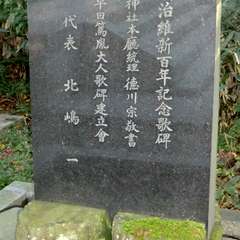 治維新百年記念歌碑
神社本廳統理 徳川宗敬書
平田篤胤大人歌碑建立會
代表 北嶋 一